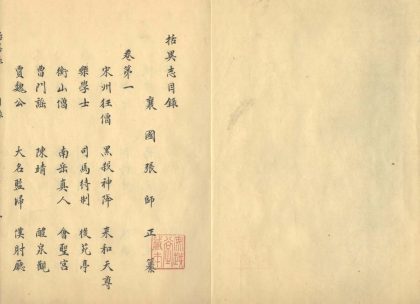 括異志目錄
襄國張師正纂
卷第一
宋州狂僧 黑殺神降 來和天尊
樂學士 司馬待制 後苑亭
衡山僧 南岳真人 會聖宮
曹門謠 陳靖 醴泉觀
賈魏公 大名監埽 僕射廳